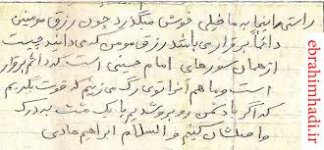 راستی اینجا به ما خیلی خوش میگذرد چون رزق مومنین
دائماً برقرار می باشد رزق مومن که می دانید چیست
از همان سورهای امام حسینی است که دائم برقرار
است و ما هم آنرا توی رگ می زنیم که قوت بگیریم
که اگر با دشمن روبرو شدیم با یک مشت بد درک
واصلشان کنیم والسلام ابراهیم هادی
ebrahimhadi.ir